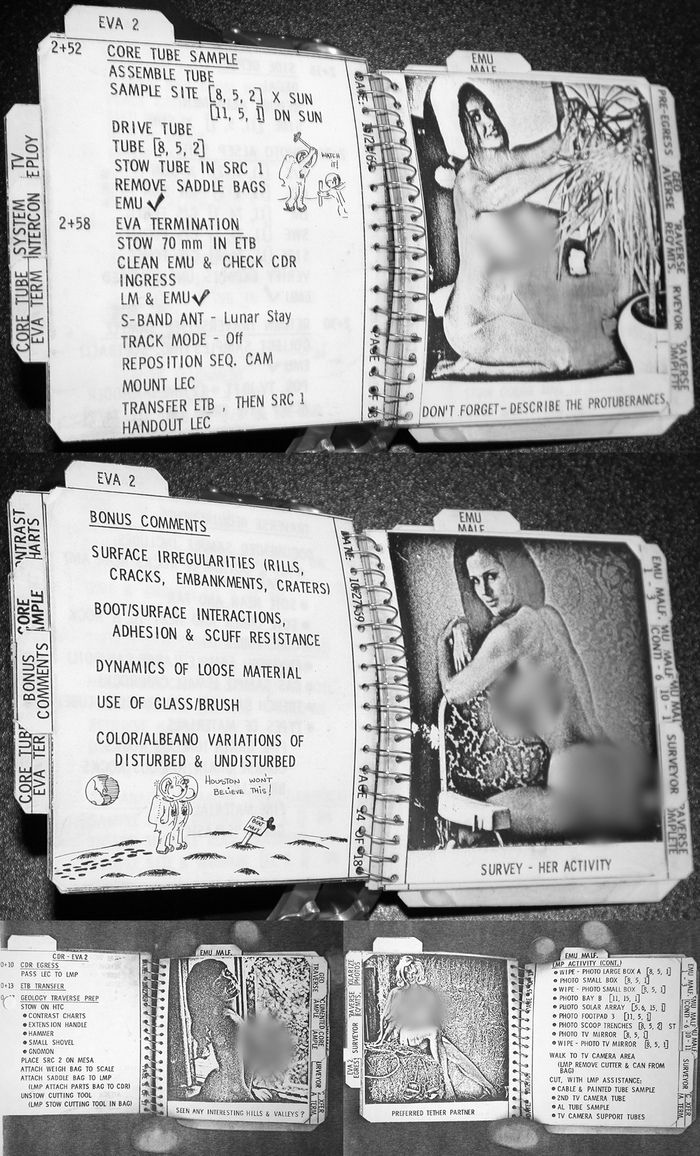 EVA 2
2+52
CORE TUBE SAMPLE
ASSEMBLE TUBE
SAMPLE SITE [8, 5, 2] X SUN
[11, 5, 1] DN SUN
DRIVE TUBE
TUBE [8, 5, 2]
STOW TUBE IN SRC 1
REMOVE SADDLE BAGS
EMU ✓
WATCH IT!
2+58
EVA TERMINATION
STOW 70 mm IN ETB
CLEAN EMU & CHECK CDR
INGRESS
LM & EMU ✓
S-BAND ANT - Lunar Stay
TRACK MODE - Off
REPOSITION SEQ. CAM
MOUNT LEC
TRANSFER ETB , THEN SRC 1
HANDOUT LEC
CORE TUBE SYSTEM TV
EVA TERM INTERCON EPLOY
EMU
MALF
PRE-EGRESS
DON'T FORGET - DESCRIBE THE PROTUBERANCES
EVA 2
BONUS COMMENTS
SURFACE IRREGULARITIES (RILLS,
CRACKS, EMBANKMENTS, CRATERS)
BOOT/SURFACE INTERACTIONS,
ADHESION & SCUFF RESISTANCE
DYNAMICS OF LOOSE MATERIAL
USE OF GLASS/BRUSH
COLOR/ALBEANO VARIATIONS OF
DISTURBED & UNDISTURBED
HOUSTON WON'T
BELIEVE THIS!
NTRAST
HARTS
CORE
MPLE
BONUS
COMMENTS
CORE TUBE
EVA TER
EMU
MALF
SURVEYOR
SURVEY - HER ACTIVITY
CDR - EVA 2
0+10
CDR EGRESS
PASS LEC TO LMP
0+13
ETB TRANSFER
GEOLOGY TRAVERSE PREP
STOW ON HTC
• CONTRAST CHARTS
• EXTENSION HANDLE
• HAMMER
• SMALL SHOVEL
• GNOMON
PLACE SRC 2 ON MESA
ATTACH WEIGH BAG TO SCALE
ATTACH SADDLE BAG TO LMP
(LMP ATTACH PARTS BAG TO CDR)
UNSTOW CUTTING TOOL
(LMP STOW CUTTING TOOL IN BAG)
EMU MALF.
SURVEYOR
SEEN ANY INTERESTING HILLS & VALLEYS ?
SURVEYOR
PREFERRED TETHER PARTNER
EMU MALF.
LMP ACTIVITY (CONT.)
• WIPE - PHOTO LARGE BOX A [8, 5, 1]
• PHOTO SMALL BOX [8, 5, 1]
• WIPE - PHOTO SMALL BOX [8, 5, 1]
• PHOTO BAY B [11, 15, 1]
• PHOTO SOLAR ARRAY [5.6, 15, 1]
• PHOTO FOOTPAD 3 [11, 5, 1]
• PHOTO SCOOP TRENCHES [8, 5, 2] ST
• PHOTO TV MIRROR [8, 5, 1]
• WIPE - PHOTO TV MIRROR [8, 5, 1]
WALK TO TV CAMERA AREA
(LMP REMOVE CUTTER & CAN FROM
BAG)
CUT, WITH LMP ASSISTANCE:
• CABLE & PAINTED TUBE SAMPLE
• 2ND TV CAMERA TUBE
• AL TUBE SAMPLE
• TV CAMERA SUPPORT TUBES